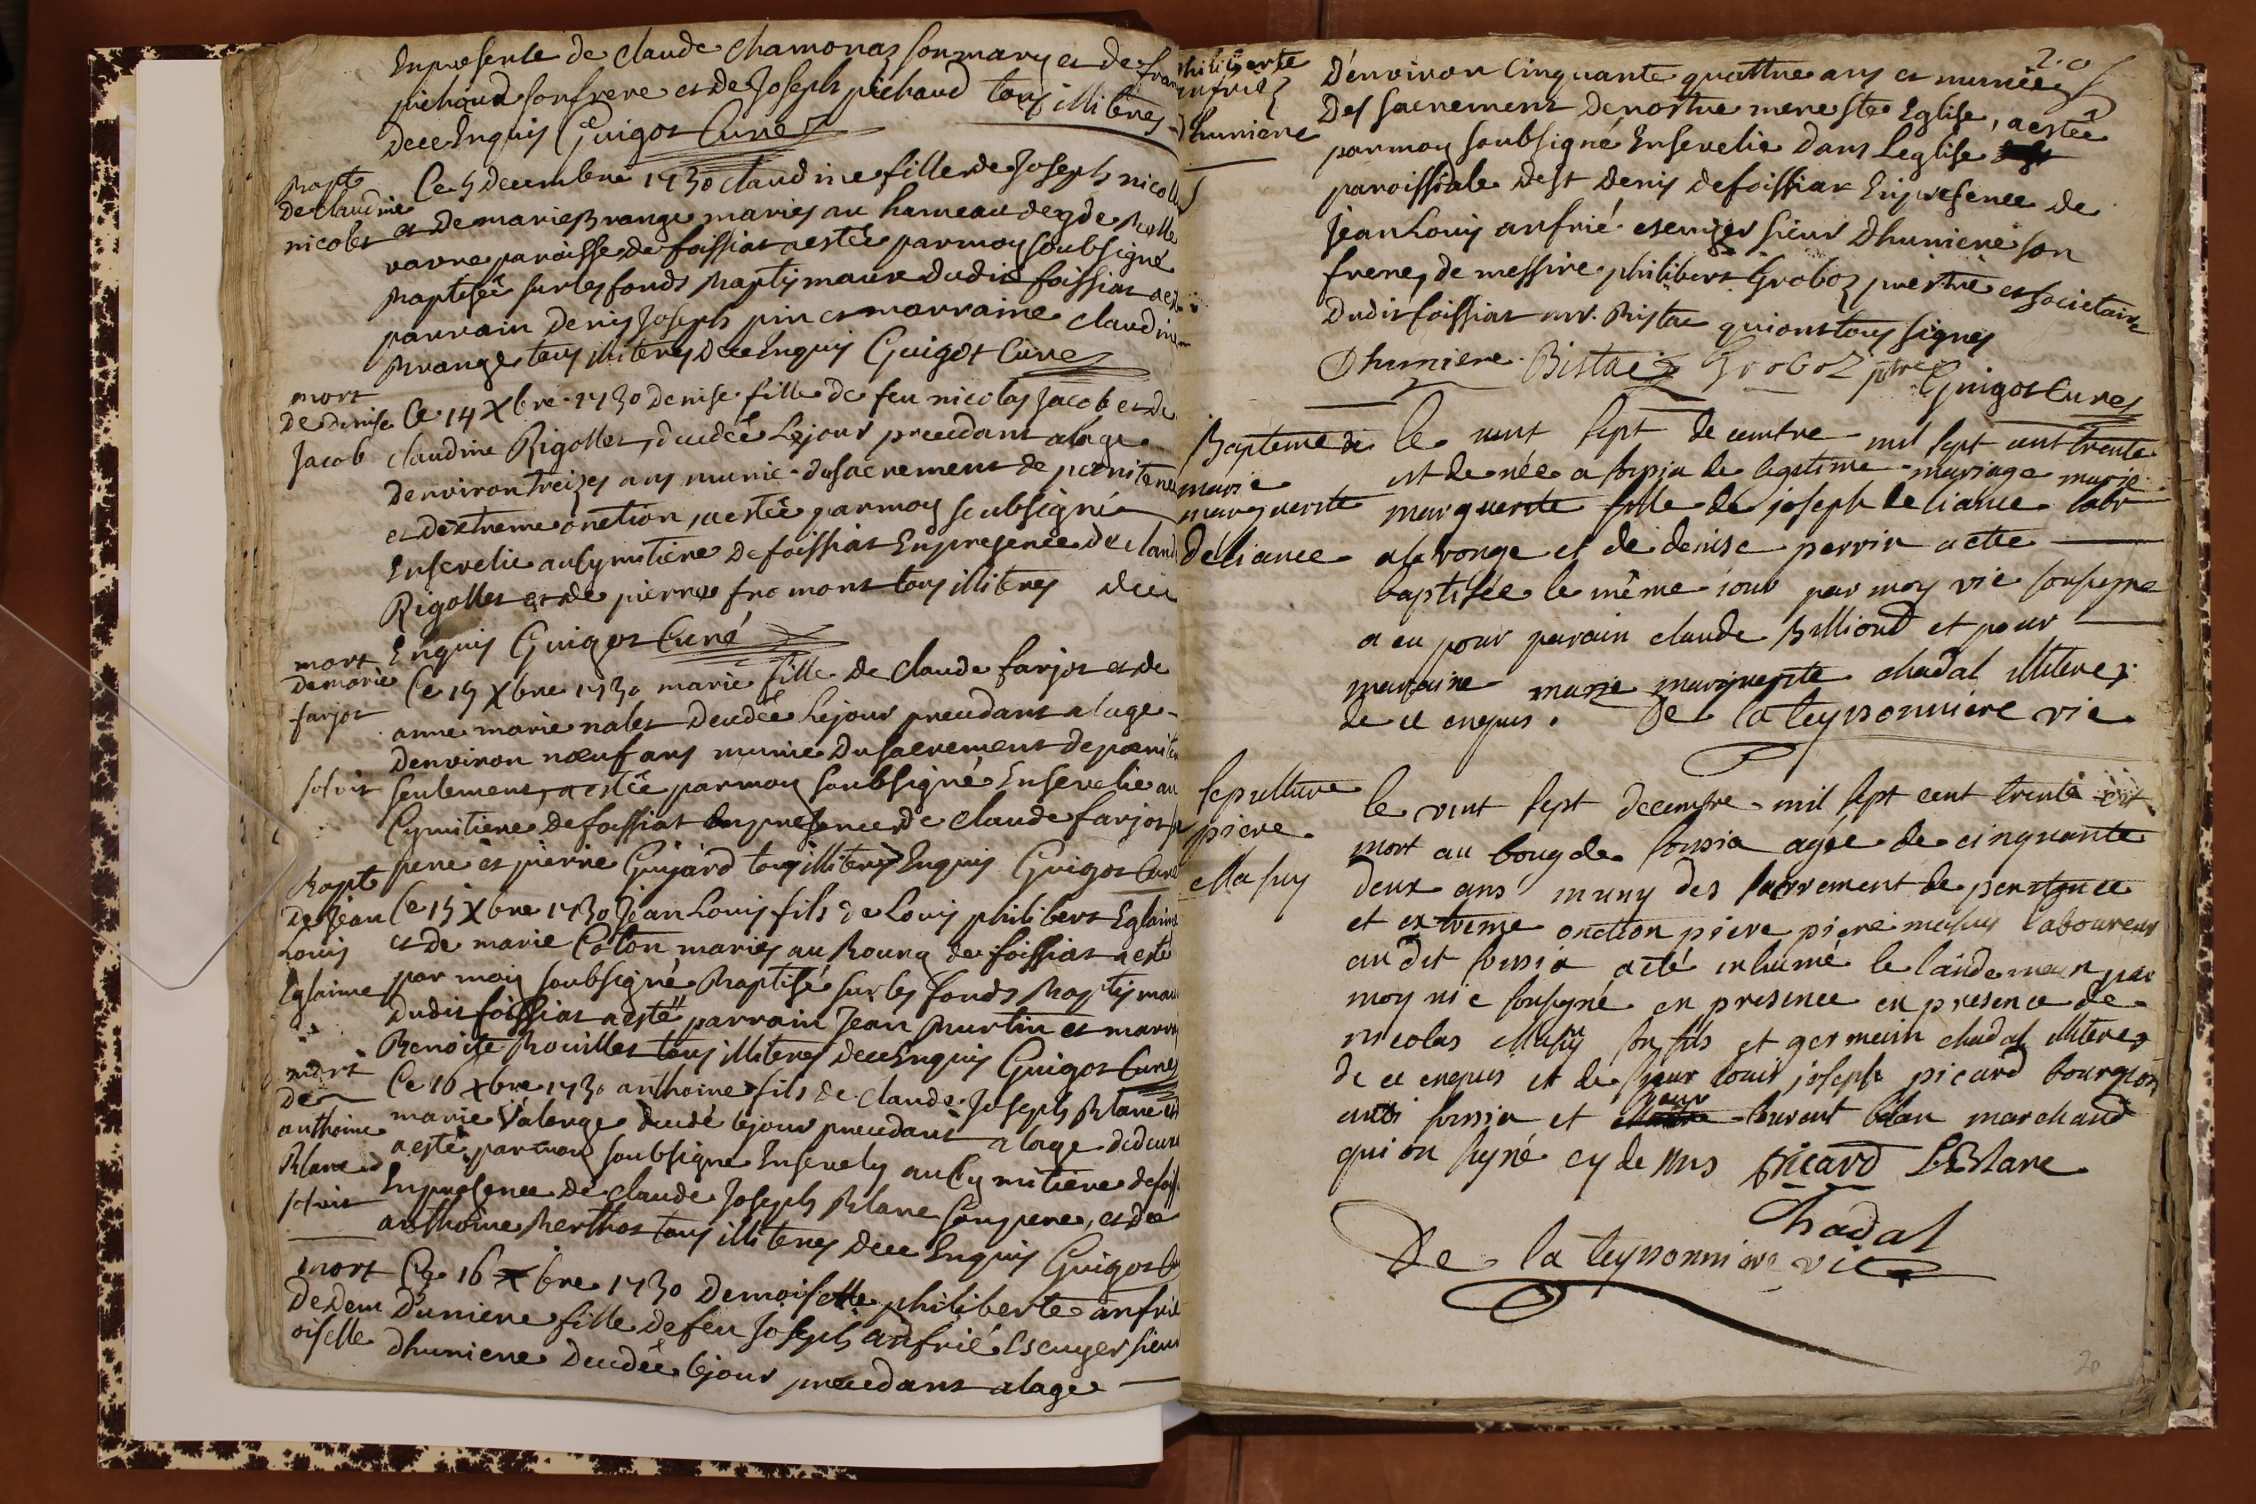 Enpresente de claude chamonas son mary et de fran
pichoud son frere et de Joseph pichaud tous illiteres
dece Enquis Guigot Curé
Bapt
de claudine
nicolet
Ce 5 decembre 1730 claudine fille de Joseph nicolle
et de marie Brange mariés au hameau de
varne paroisse de foissiat a estée par moy soubsigné
Baptisée sur les fonds Baptismaux dudit foissiat a este
parrain denis Joseph pin et marraine claudine
Brange tous illiteres dece Enquis Guigot Curé
mort
de denise
Jacob
Ce 14 Xbre 1730 denise fille de feu nicolas Jacob et de
claudine Rigollet, decedée Lejour precedant alage
denviron treizes ans munie du sacrement de poenitence
et dextreme onction, a estée par moy soubsigné
Ensevelie au Cymitiere de foissiat Enpresence de claud
Rigollet et de pierre fromont tous illiteres dece
Enquis Guigot Curé
mort
de marie
farjot
Ce 15 Xbre 1730 marie fille de Claude farjot et de
anne marie nalet decedée Lejour precedant alage
denviron nœuf ans munie du sacrement de poenite
solvit
seulement, a estée par moy soubsigné Ensevelie au
Cymitiere de foissiat Enpresence de claude farjot
pere et pierre Gujard tous illiteres Enquis Guigot Curé
Bapt
de Jean
Louis
Eglaine
Ce 15 Xbre 1730 Jean Louis fils de Louis philibert Eglaine
et de marie Coton mariés au Bourg de foissiat a esté
par moy soubsigné Baptisé sur les fonds Baptismau
dudit foissiat a esté parrain Jean Burtin et marr
Benoite Rouillet tous illiteres dece Enquis Guigot Curé
mort
de
anthoine
Blanc
solvit
Ce 16 Xbre 1730 anthoine fils de claude Joseph Blanc et
marie Valenge decedé lejour precedant a lage dedeux
a esté par moy soubsigne Ensevely au Cymitiere defoiss
Enpresence de claude Joseph Blanc son pere, et de
anthoine Berthot tous illiteres dece Enquis Guigot Cu
mort
de dem
oiselle
Ce 16 Xbre 1730 demoiselle philiberte anfrié
d'uniere fille de feu Joseph anfrié Escuyer sieur
dhuniere decedée lejour precedant alage
philiberte
anfriez
dhuniere
20
D'environ cinquante quattre ans et muniée
des sacrement de nostre mere ste Eglise, a estée
par moy soubsigné Ensevelie dans Leglise
paroissiale de st denis de foissiat Enpresence de
Jean Louis anfrié escuyer sieur Dhuniere son
frere, de messire philibert Groboz prestre et societaire
dudit foissiat mr. Bistac quiont tous signés
Dhuniere Bistac Groboz ptre Guigot Curé
Bapteme de
marie
marguerite
déliance
le vint sept decembre mil sept cent trente
est de née a foissia de legitime mariage marie
marguerite fille de joseph de liance labr
a la ronge et de denise perrin a ette
baptisée le même iour par moy vic sousigne
a eu pour parain claude Billioud et pour
maraine marie marguerite chadal illiteres
de ce enquis. De la teyssonniere vic
sepulture
piere
Masuy
le vint sept decembre mil sept cent trente est
mort au boug de foissia agée de cinquante
deux ans muny des sacrement de penitence
et extreme onction piere piere masuy laboureur
au dit foissia a été inhumé le landemain par
moy vic sousigné en presence en presence de
nicolas Masuy son fils et germain chadal illiteres
de ce enquis et de sieur louis joseph picard bourgeois
audi foissia et sieur laurent blan marchand
qui on signé cy de sus Picard LBlanc
Chadal
De la teyssonniere vic
20